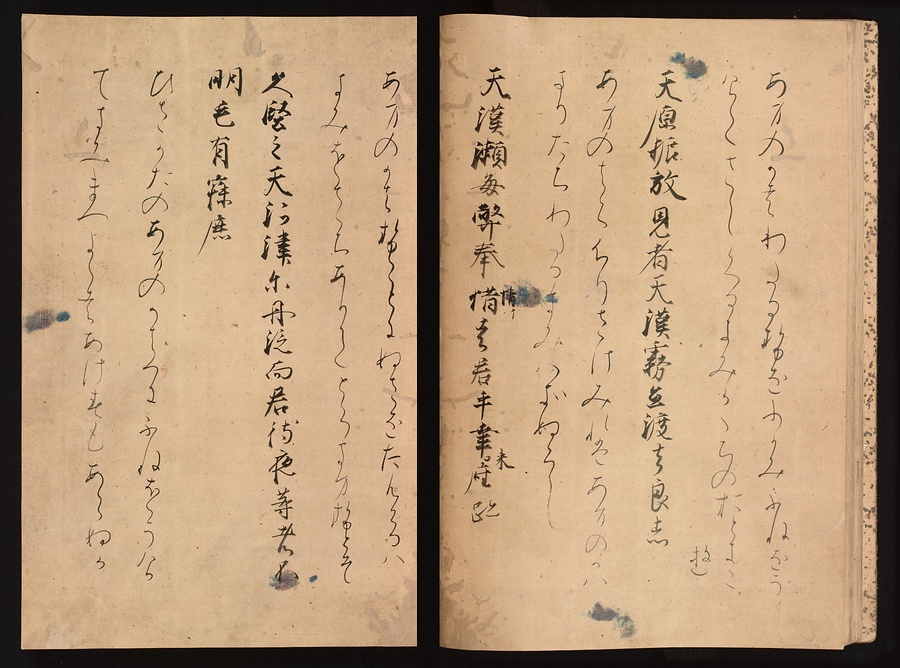 あまのかはわたるせをふかみふねをう
けてさしくるきみかゝちのおと
天原振放見者天漢霧立渡 良志
あまのはらふりさけみれはあまのかは
きりたちわたるきみはきぬらし
天漢瀬毎幣奉惜者君乎幸来座跡
情
あまのかはせことにぬさをたてまつるは
きみを
久堅之天河津尓舟泛而君待夜等者不
明毛有寐鹿
ひさかたのあまのかはつにふねをうけ
てきみまつよらはあけすもあらぬか